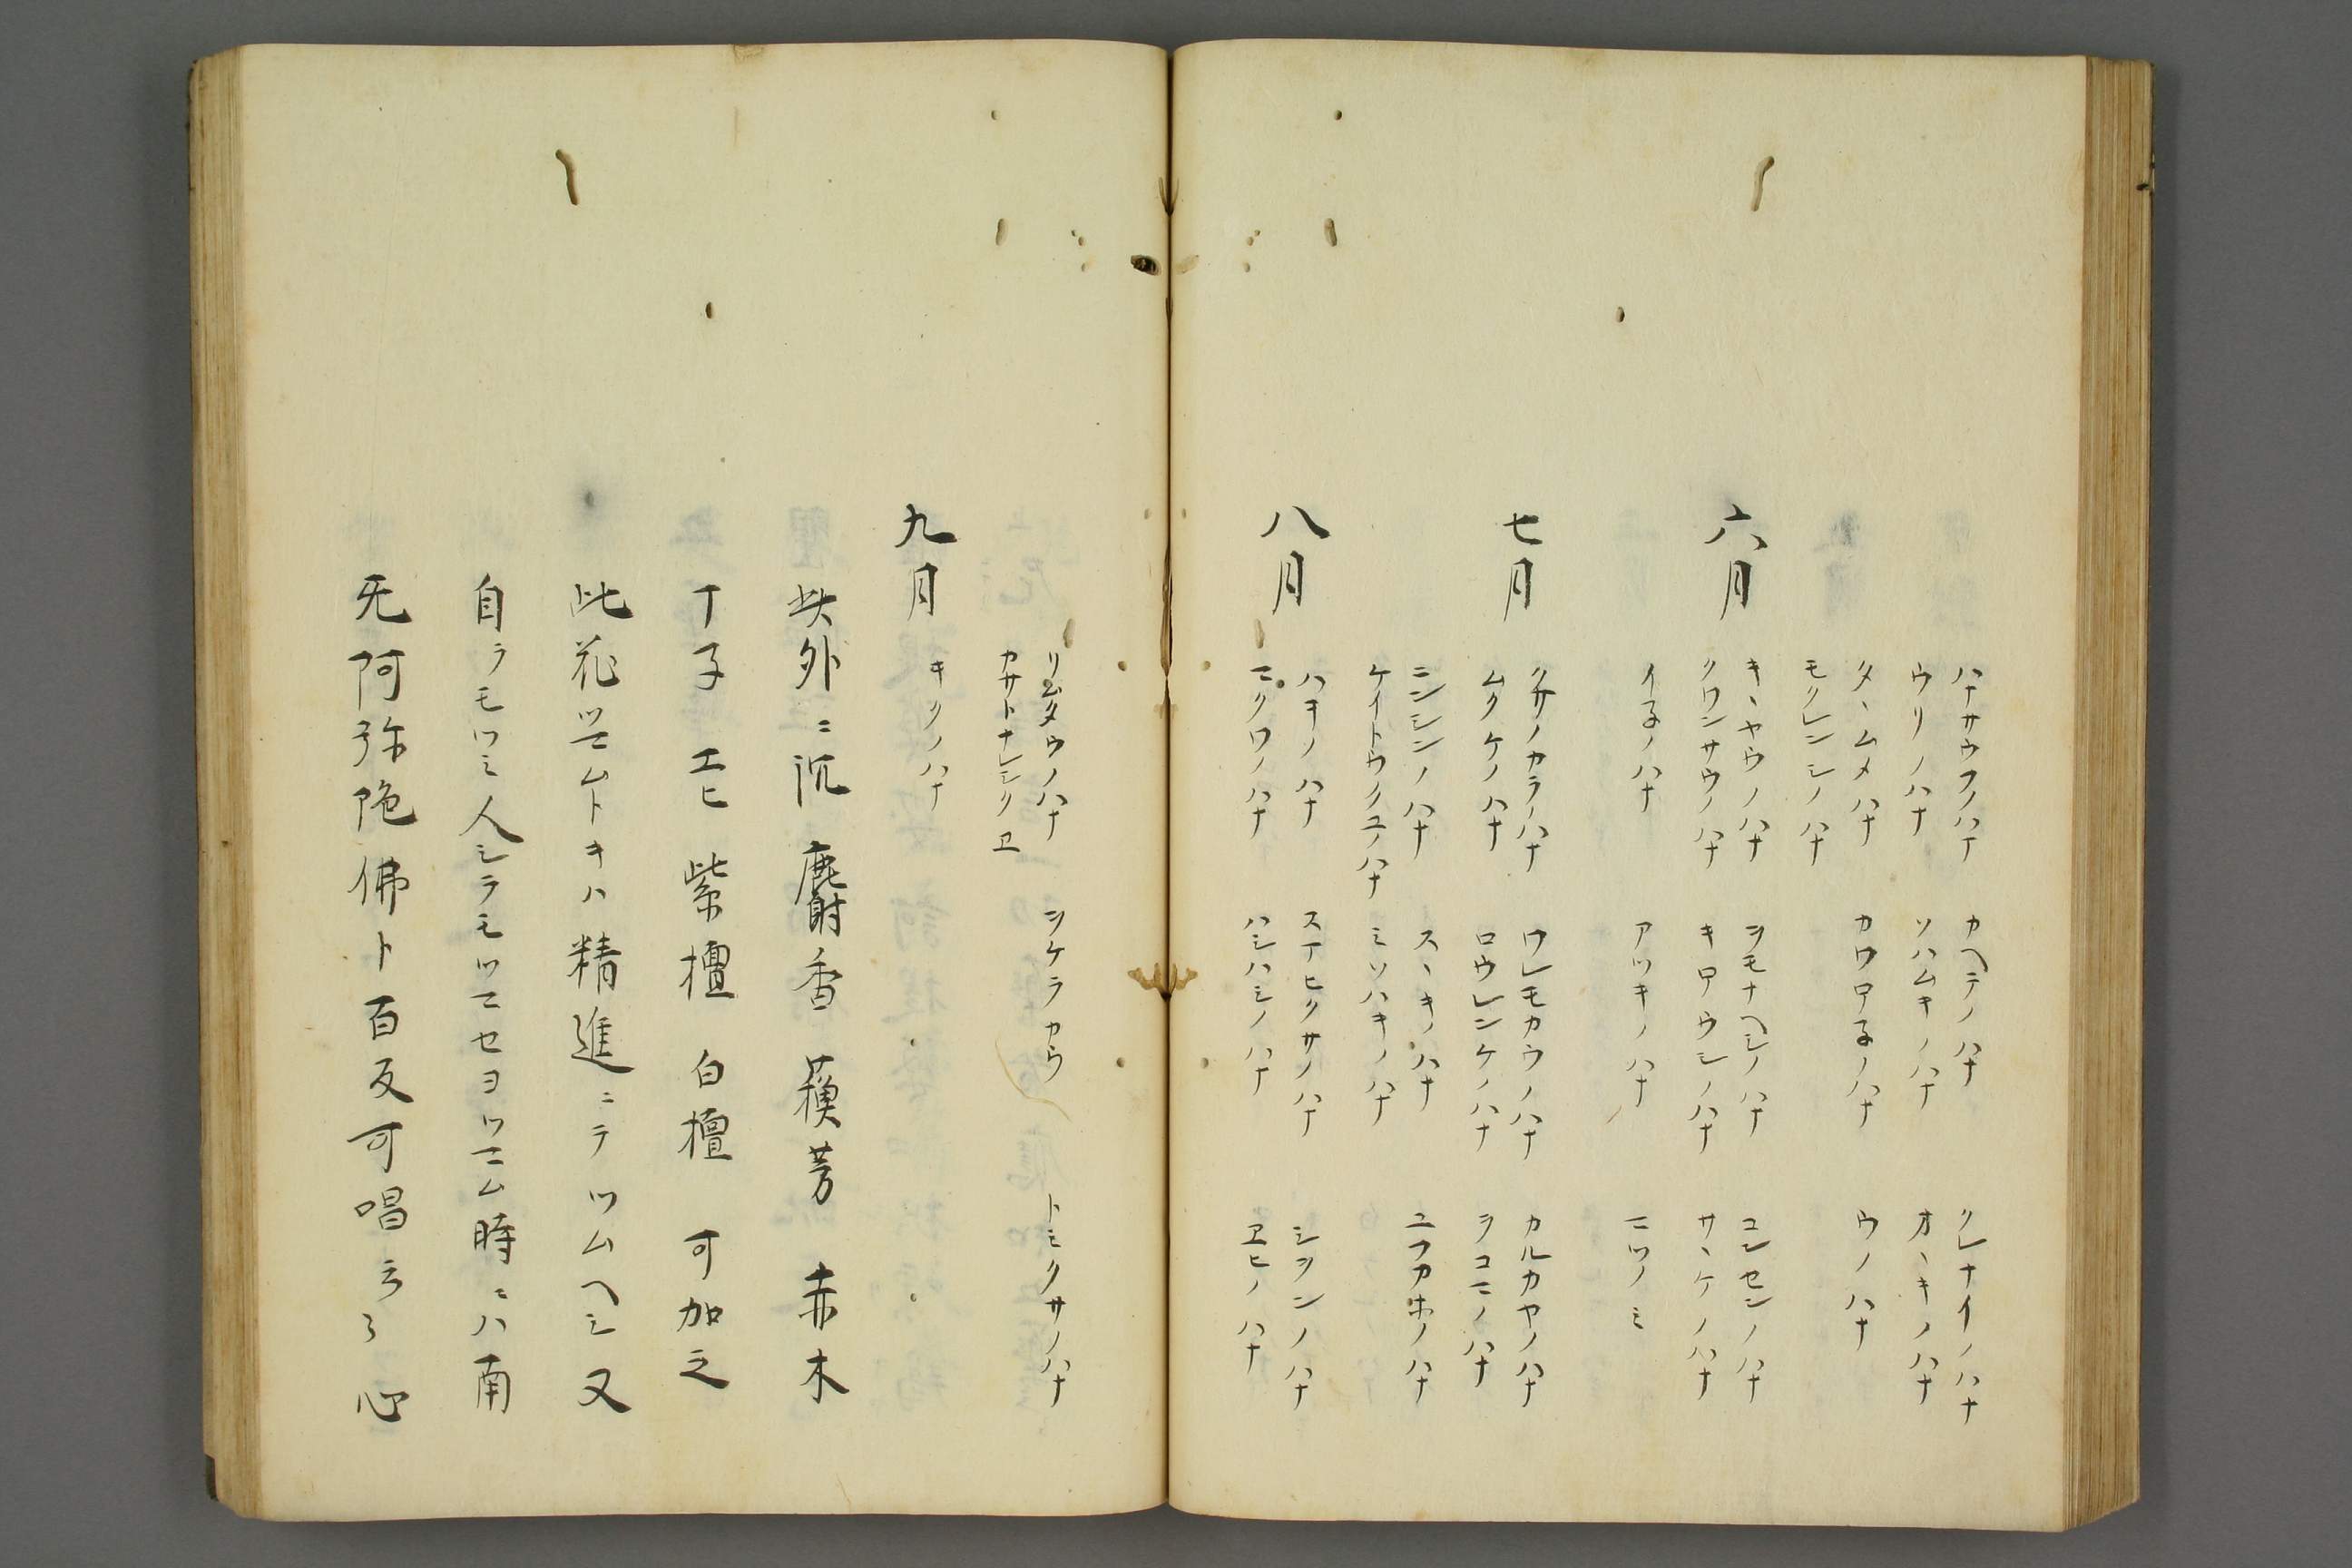 ハナサウフノハナ　カヘテノハナ　クレナイノハナ
ウリノハナ　ソハムキノハナ　オヽキノハナ
タヽムメハナ　カワロ子ノハナ　ウノハナ
モクレンシノハナ
六月　キヽヤウノハナ　ヲモナヘシノハナ　コンセンノハナ
クワンサウノハナ　キロウシノハナ　サヽケノハナ
イ子ノハナ　アツキノハナ　ニツノミ
七月　クサノカラノハナ　ワレモカウノハナ　カルカヤノハナ
ムクケノハナ　ロウレンケノハナ　ヲコニノハナ
ニンシンノハナ　スヽキノハナ　ユフカホノハナ
ケイトウノクエノハナ　ミソハキノハナ
八月　ハキノハナ　スアヒクサノハナ　シヲンノハナ
ニクワノハナ　ハシハミノハナ　ヱヒノハナ
リムタウノハナ　シケラカウ　トミクサノハナ
カサトナレシクヱ
九月　キクノハナ
此外ニ沉　麝香　蘓芳　赤木
丁子　エヒ　紫檀　白檀　可加之
此花ツニムトキハ精進ニテツムヘシ又
自ラモツミ人シラモツニセヨツニム時ニハ南
无阿弥陀佛ト百反可唱云々心